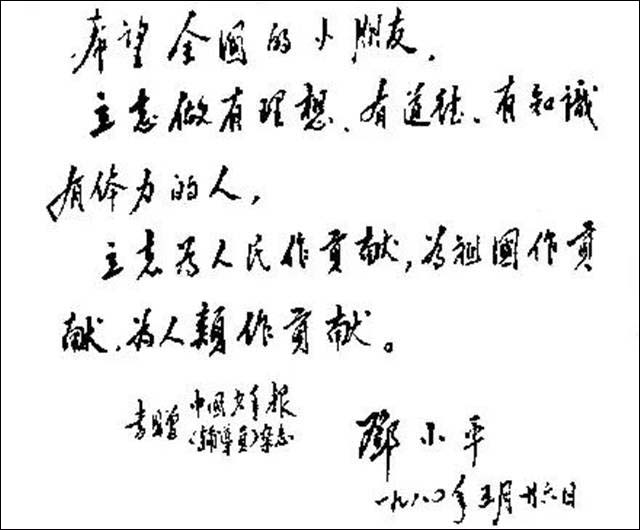 希望全國的小朋友，
立志做有理想、有道德、有知識
有体力的人，
立志为人民作貢献，为祖國作貢
献，为人類作貢献。
书赠
中國少年报
《辅導員》杂志
鄧小平
一九八〇年五月廿六日